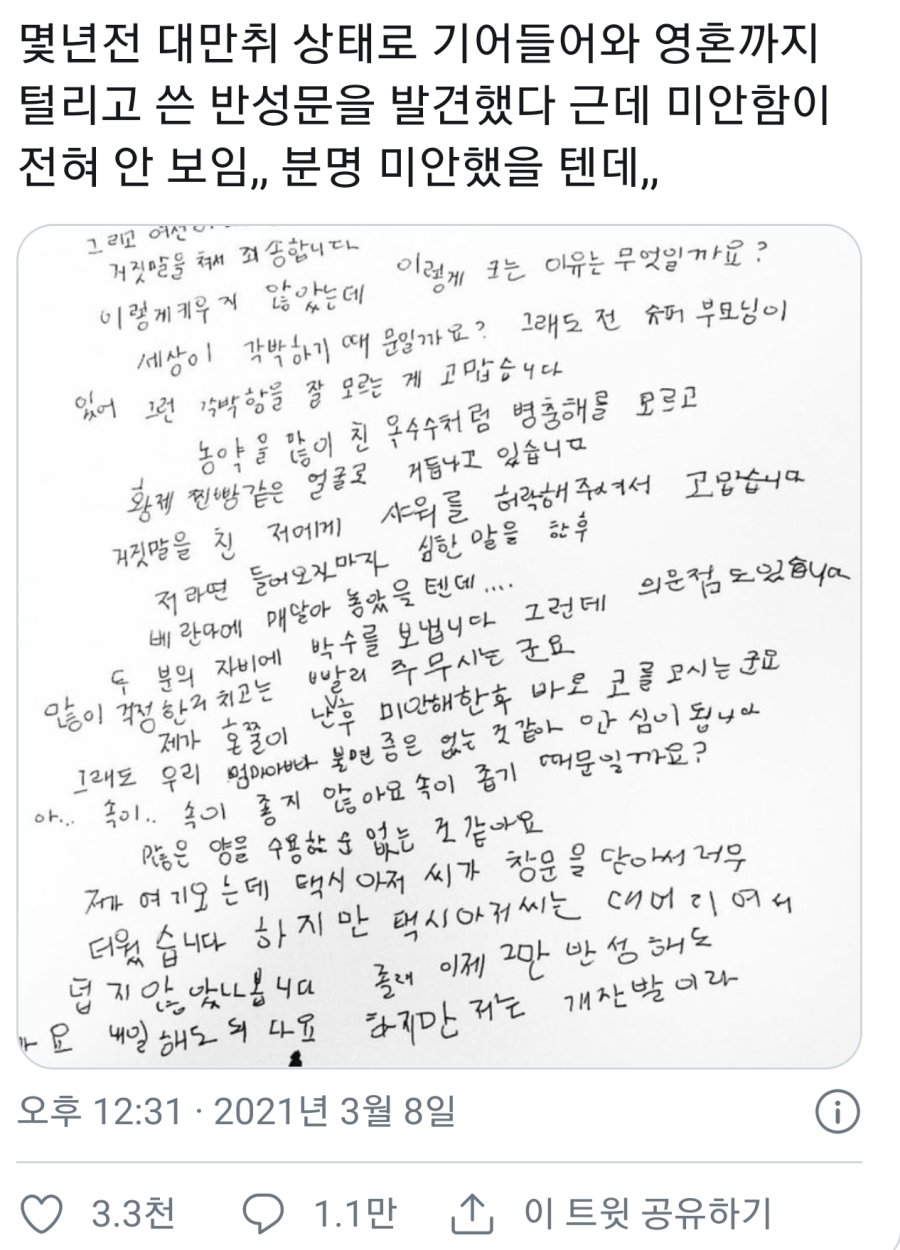 몇년전 대만취 상태로 기어들어와 영혼까지
털리고 쓴 반성문을 발견했다 근데 미안함이
전혀 안 보임,, 분명 미안했을 텐데,,
그리고
거짓말을 쳐서 죄송합니다
이렇게 크는 이유는 무엇일까요?
이렇게키우지 않았는데
세상이 각박하기 때문일까요? 그래도 전 슈퍼 부모님이
있어 그런 각박함을 잘 모르는 게 고맙습니다
농약을 많이 친 옥수수처럼 병충해를 모르고
황제 찐빵같은 얼굴로 거듭나고 있습니다
거짓말을 친 저에게 샤워를 허락해주셔서 고맙습니다
저라면 들어오자마자 심한 말을 한 후
베란다에 매달아 놓았을 텐데....
두 분의 자비에 박수를 보냅니다 그런데 의문점도있습니다
많이 걱정한거 치고는 빨리 주무시는 군요
제가 혼쭐이 난후 미안해한후 바로 코를 고시는군요
그래도 우리 엄마아빠 불면증은 없는 것같아 안심이 됩니다
아... 속이.. 속이 좋지 않아요 속이 좁기 때문일까요?
많은 양을 수용할 순 없는 것 같아요
제가 여기오는데 택시 아저씨가 창문을 닫아서 너무
더웠습니다 하지만 택시아저씨는 대머리여서
덥지 않았나봅니다 졸려 이제 그만 반성해도
요 내일 해도 되 다요 하지만 저는 개잔발이라
오후 12:31 · 2021년 3월 8일
3.3천 1.1만 이 트윗 공유하기